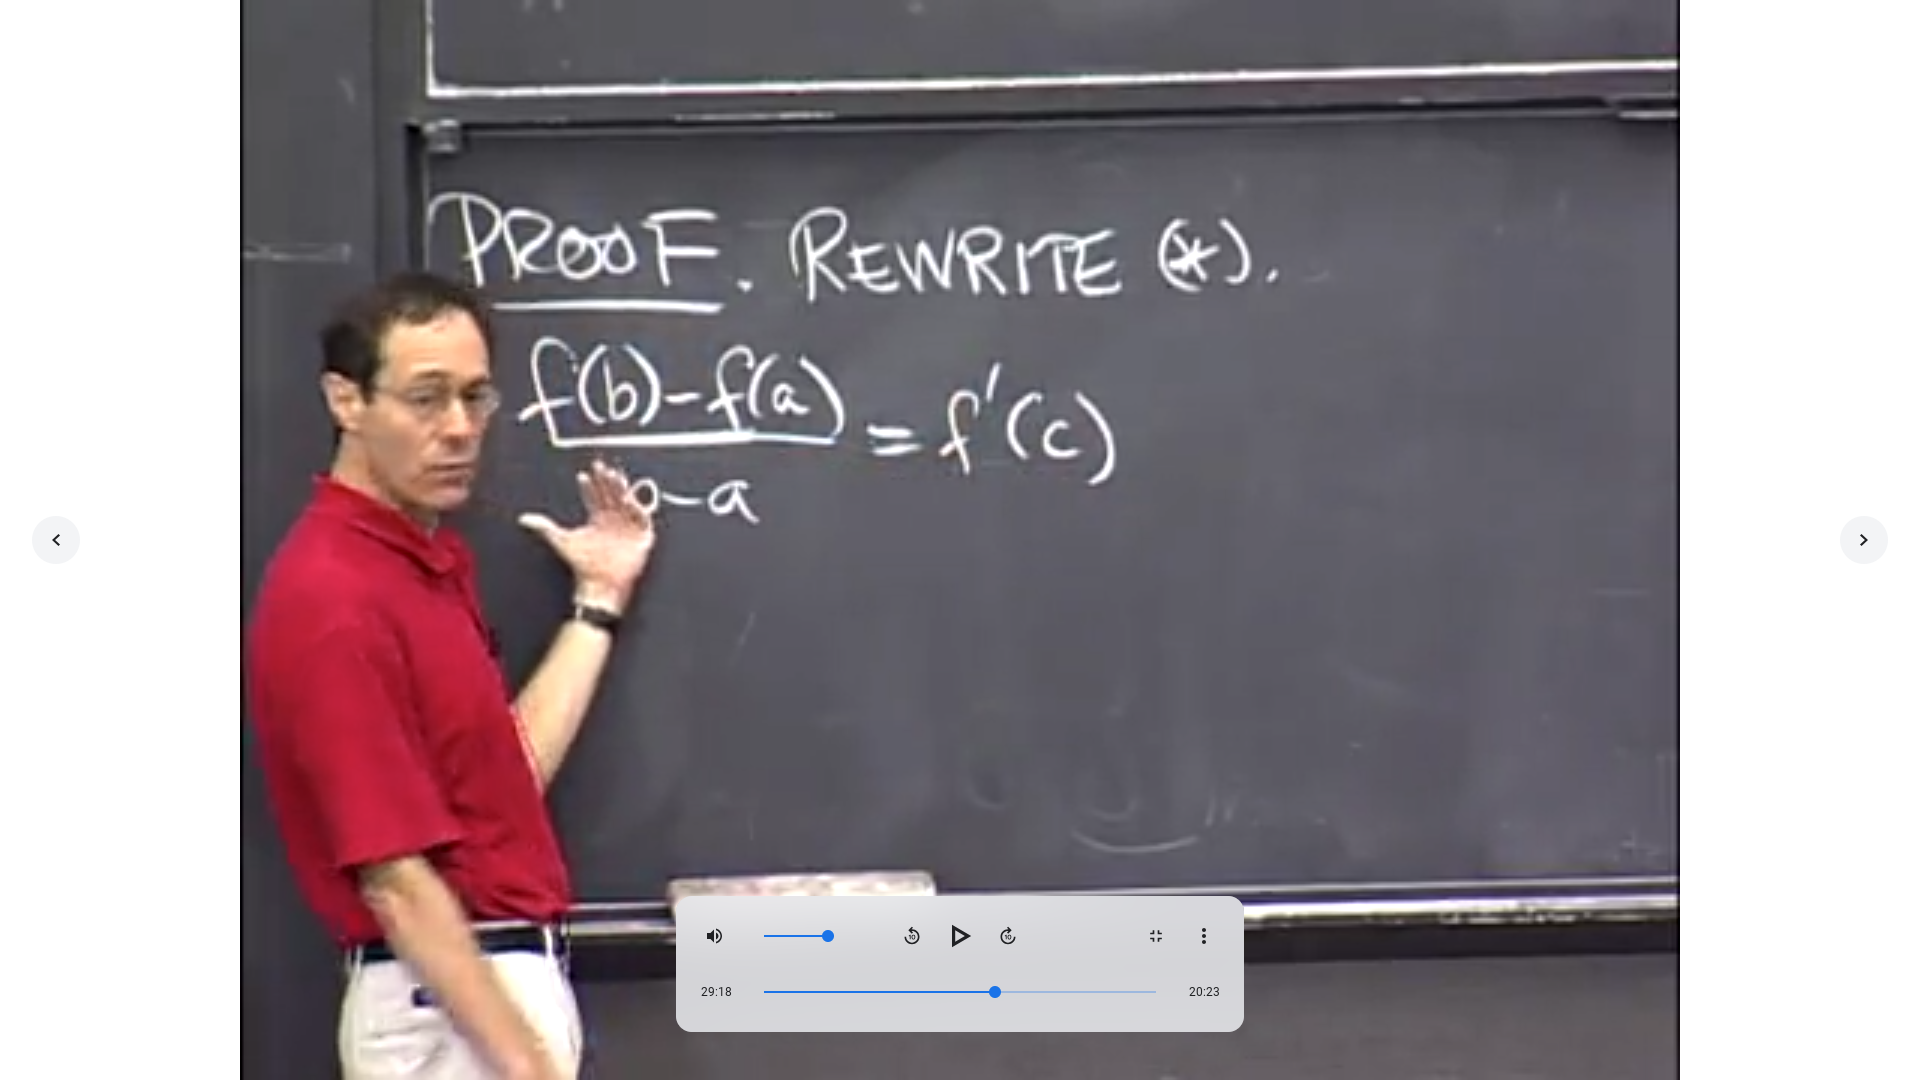 PROOF. REWRITE (*).
f(b)-f(a)
= f'(c)
b-a
10
10
29:18
20:23